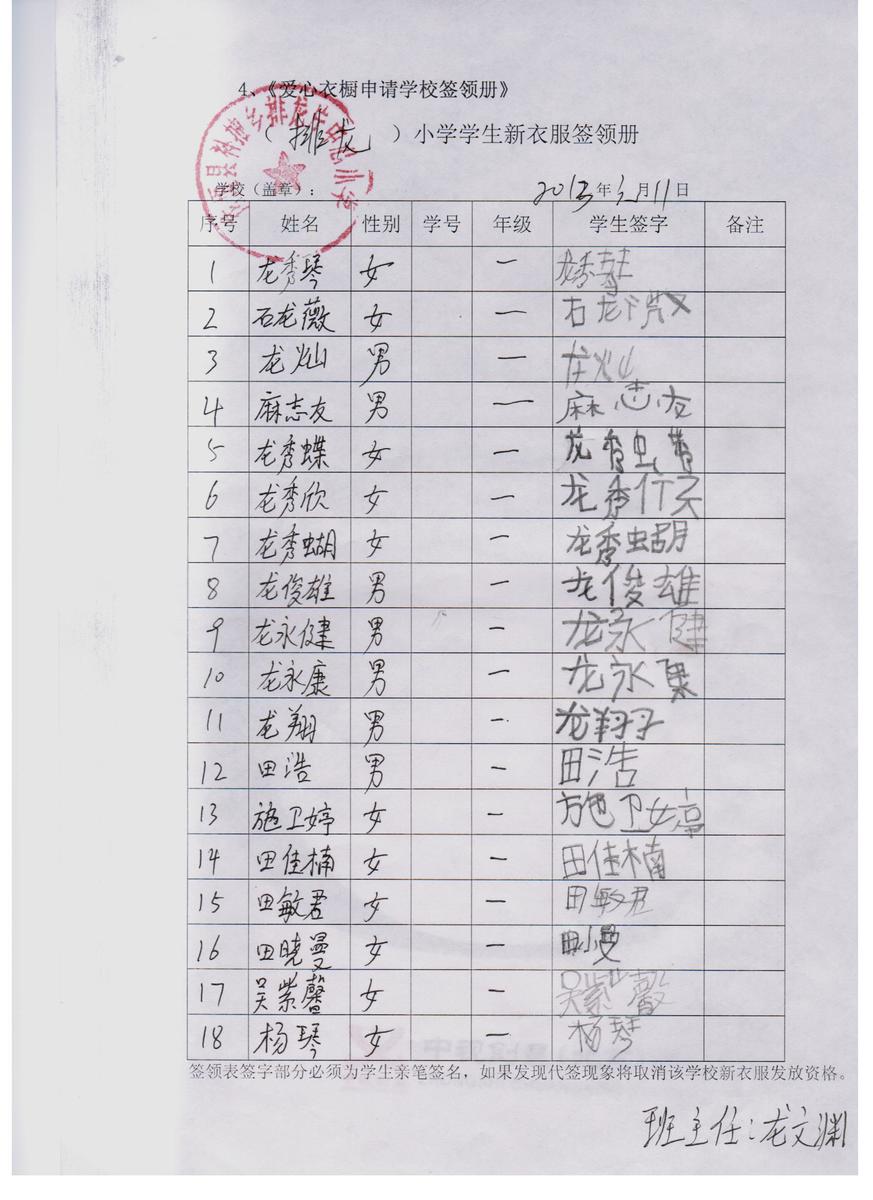 4、《爱心衣橱申请学校签领册》
（排龙）小学学生新衣服签领册
学校（盖章）： 2013年 月11日
序号 姓名 性别 学号 年级 学生签字 备注
1 龙秀琴 女 一 龙秀琴
2 石龙薇 女 一 石龙薇
3 龙灿 男 一 龙灿
4 麻志友 男 一 麻志友
5 龙秀蝶 女 一 龙秀蝶
6 龙秀欣 女 一 龙秀欣
7 龙秀蝴 女 一 龙秀蝴
8 龙俊雄 男 一 龙俊雄
9 龙永健 男 一 龙永健
10 龙永康 男 一 龙永康
11 龙翔 男 一 龙翔
12 田浩 男 一 田浩
13 施卫婷 女 一 施卫婷
14 田佳楠 女 一 田佳楠
15 田敏君 女 一 田敏君
16 田晓曼 女 一 田小曼
17 吴紫馨 女 一 吴紫馨
18 杨琴 女 一 杨琴
签领表签字部分必须为学生亲笔签名，如果发现代签现象将取消该学校新衣服发放资格。
班主任：龙文渊